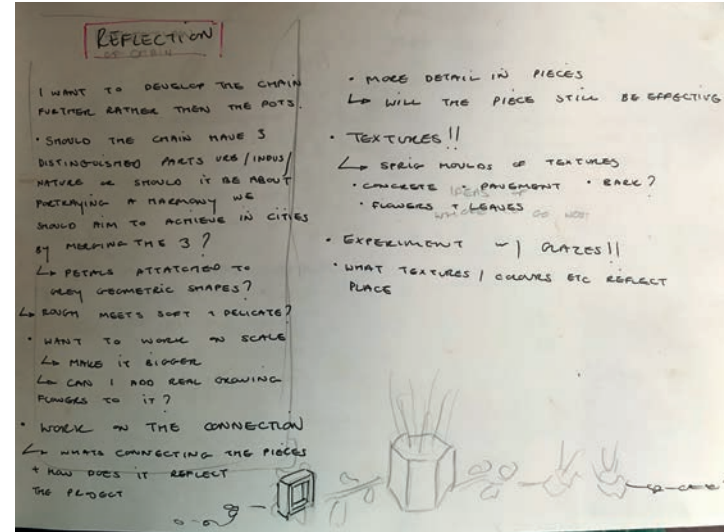 REFLECTION
I WANT TO DEVELOP THE CHAIN
FURTHER RATHER THEN THE POTS.
• SHOULD THE CHAIN HAVE 3
DISTINGUISHED PARTS URB/INDUS/
NATURE OR SHOULD IT BE ABOUT
PORTRAYING A HARMONY WE
SHOULD AIM TO ACHIEVE IN CITIES
BY MERGING THE 3?
↳ PETALS ATTATCHED TO
GREY GEOMETRIC SHAPES?
↳ ROUGH MEETS SOFT + DELICATE?
• WANT TO WORK ON SCALE
↳ MAKE IT BIGGER
↳ CAN I ADD REAL GROWING
FLOWERS TO IT?
• WORK ON THE CONNECTION
↳ WHATS CONNECTING THE PIECES
+ HOW DOES IT REFLECT
THE PROJECT
• MORE DETAIL IN PIECES
↳ WILL THE PIECE STILL BE EFFECTIVE
• TEXTURES!!
↳ SPRIG MOULDS OF TEXTURES
• CONCRETE • PAVEMENT • BARK?
• FLOWERS + LEAVES
• EXPERIMENT w/ GLAZES!!
• WHAT TEXTURES / COLOURS ETC REFLECT
PLACE